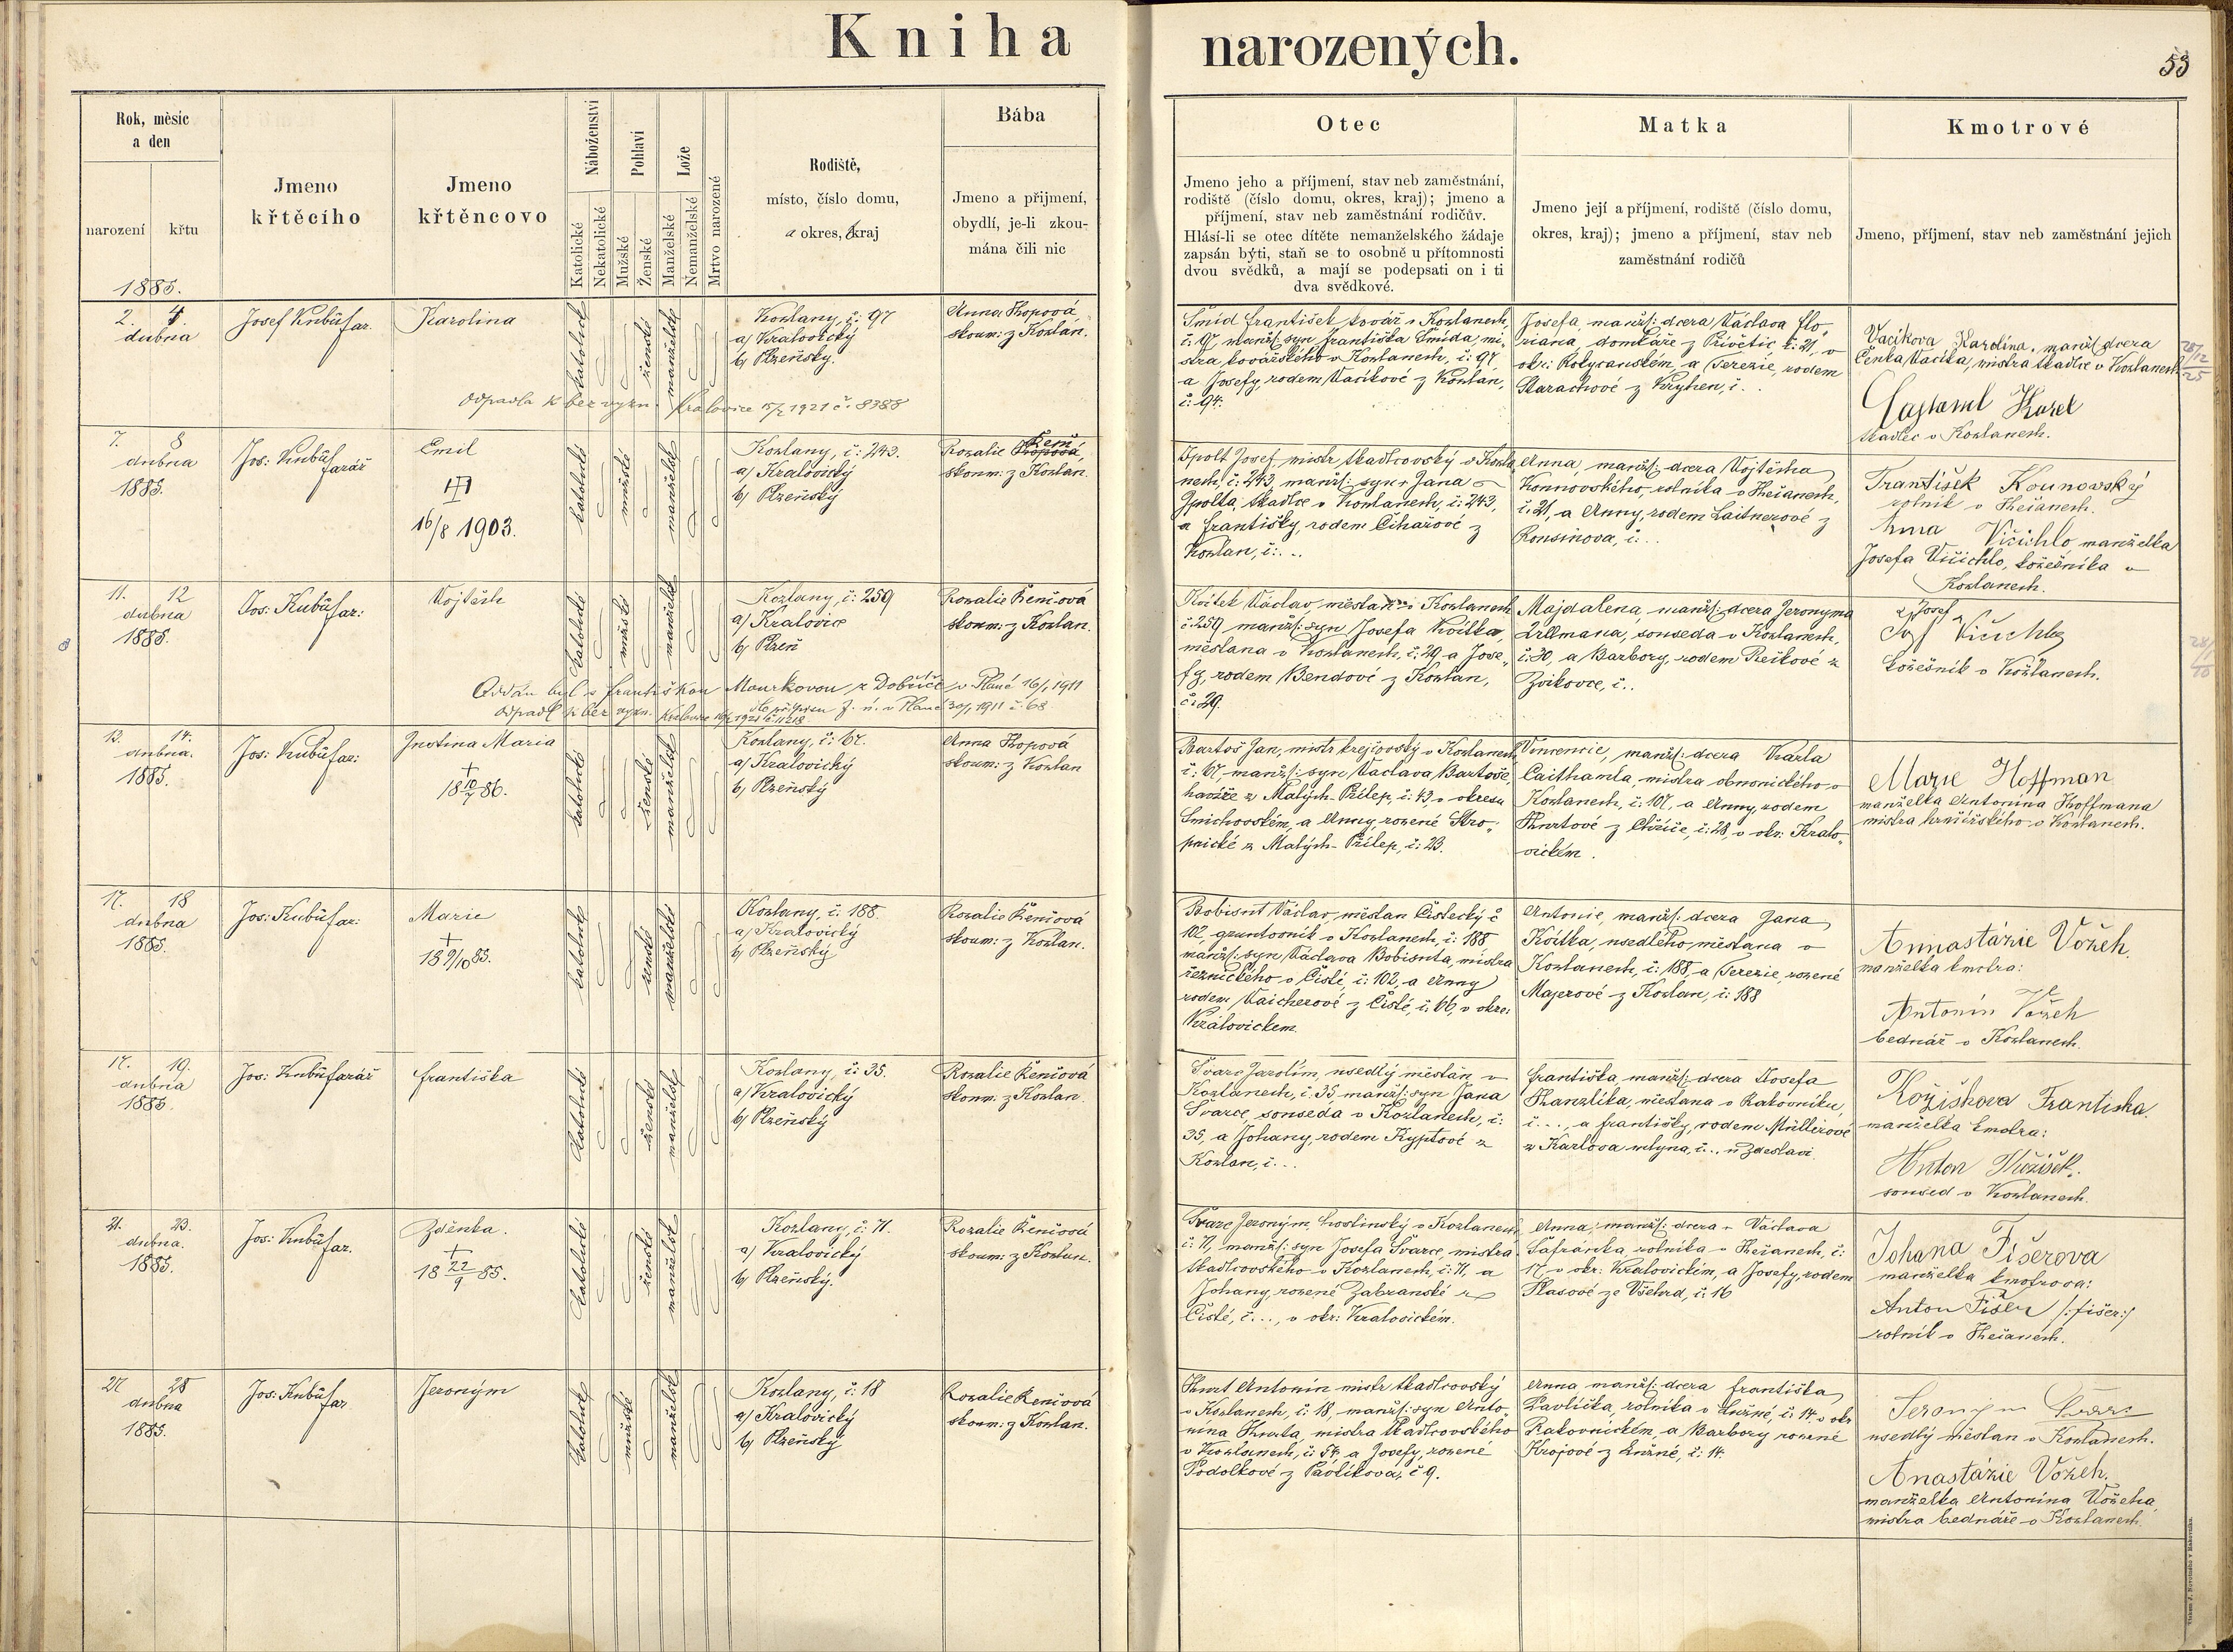 Kniha narozených.
53
Rok, měsíc
a den
narození
křtu
1885.
Jmeno
křtěcího
Jmeno
křtěncovo
Náboženství
Katolické
Nekatolické
Pohlaví
Mužské
Ženské
Lože
Manželské
Nemanželské
Mrtvo narozené
Rodiště,
místo, číslo domu,
a okres, b kraj
Bába
Jmeno a příjmení,
obydlí, je-li zkou-
mána čili nic
Otec
Jmeno jeho a příjmení, stav neb zaměstnání,
rodiště (číslo domu, okres, kraj); jmeno a
příjmení, stav neb zaměstnání rodičův.
Hlásí-li se otec dítěte nemanželského žádaje
zapsán býti, staň se to osobně u přítomnosti
dvou svědků, a mají se podepsati on i ti
dva svědkové.
Matka
Jmeno její a příjmení, rodiště (číslo domu,
okres, kraj); jmeno a příjmení, stav neb
zaměstnání rodičů
Kmotrové
Jmeno, příjmení, stav neb zaměstnání jejich
2. 4.
dubna
Josef Kubů far.
Karolina
katolické
ženské
manželské
Kozlany, č: 97
a) Kralovický
b) Plzeňský.
Anna Hopová
skoum: z Kozlan.
odpadla k bez vyzn. Kralovice 15/2 1921 č. 8388
Šmíd František kovář v Kozlanech,
č: 97, manžl: syn Františka Šmída, mi-
stra kovářského v Kozlanech, č: 97
a Josefy, rodem Vacíkové z Kozlan,
č: 94.
Josefa, manžl: dcera Václava Flo-
riana, domkáře z Přívětic č: 21, v
okr: Rokycanském, a Terezie, rodem
Starachové z Kryhen, č..
Vacíkova Karolina, manžl: dcera
Čeňka Vacíka, mistra tkadlce v Kozlanech
28/12
25
Karel
tkadlec v Kozlanech.
7. 8
dubna
1885.
Jos: Kubů farář
Emil
16/8 1903.
katolické
mužské
manželské
Kozlany, č: 243.
a) Kralovický
b) Plzeňský
Rozalie Hopová,
skoum: z Kozlan.
Ipolt Josef, mistr tkadlcovský v Kozla-
nech, č: 243, manžl: syn Jana
Ipolta, tkadlce v Kozlanech, č: 243,
a Františky, rodem Cihařové z
Kozlan, č:...
Anna, manžl: dcera Vojtěcha
Kounovského, rolníka v Hečanech,
č: 21, a Anny, rodem Laitnerové z
Ronšinova, č:..
František Kounovský
rolník v Hečanech.
Anna Vičichlo manželka
Josefa Vičichlo, kožešníka v
Kozlanech.
11. 12
dubna
1885.
Jos: Kubů far:
Vojtěch
katolické
mužské
manželské
Kozlany, č: 259
a) Kralovice
b) Plzeň
Rozalie Řeničová
skoum: z Kozlan.
Oddán byl s Františkou Mourkovou z Dobříče v Plané 16/1 1911
odpadl k bez vyzn. Kralovice 1921 č. 11218
dle přípisu f. ú. v Plané 30/1 1911 č. 68
Koítek Václav, měšťan v Kozlanech
č: 259 manžl: syn Josefa Koítka,
měšťana v Kozlanech, č: 29 a Jose-
fy, rodem Bendové z Kozlan,
č: 29.
Majdalena, manžl: dcera Jeronyma
Ullmana, souseda v Kozlanech,
č: 30, a Barbory, rodem Reitové z
Zvikovce, č..
Josef Vičichlo
kožešník v Kožlanech.
13. 14.
dubna.
1885.
Jos: Kubů far:
Justina Maria
†
18 10/7 86.
katolické
ženské
manželské
Kozlany, č: 67.
a) Kralovický
b) Plzeňský
Anna Hopová
skoum: z Kozlan
Bartoš Jan, mistr krejčovský v Kozlanech
č: 67, manžl: syn Václava Bartoše,
havíře z Malých-Přílep, č: 43, v okresu
Smíchovském, a Anny, rozené Stro-
pnické z Malých-Přílep, č: 23.
Vincencie, manžl: dcera Karla
Caithamla, mistra obuvnického v
Kozlanech, č: 107, a Anny, rodem
Hurtové z Chříče, č: 28, v okr: Kralo-
vickém.
Marie Hoffman
manželka Antonína Hoffmana
mistra hrnčířského v Kozlanech.
17. 18
dubna
1885.
Jos: Kubů far:
Marie
†
18 9/10 85.
katolické
ženské
manželské
Kozlany, č: 188.
a) Kralovický
b) Plzeňský
Rozalie Řeničová
skoum: z Kozlan.
Bobisut Václav, měšťan Čistecký č
102, gruntovník v Kozlanech, č: 188
manžl: syn Václava Bobisuta, mistra
řeznického v Čisté, č: 102, a Anny
rodem Vaicherové z Čisté, č: 66, v okre:
Královickem.
Antonie, manžl: dcera Jana
Koítka, usedlého měšťana v
Kozlanech, č: 188, a Terezie, rozené
Majerové z Kozlan, č: 188
Annastázie Vožeh,
manželka kmotra:
Antonín Vožeh
bednář v Kozlanech.
17. 19.
dubna
1885.
Jos: Kubů farář
Františka
katolické
ženské
manželské
Kozlany, č: 35.
a) Kralovický
b) Plzeňský
Rozalie Řeničová
skoum: z Kozlan.
Švarc Jarolím, usedlý měšťan v
Kozlanech, č: 35, manžl: syn Jana
Švarce, souseda v Kozlanech, č:
35, a Johany, rodem Kyptové z
Kozlan, č...
Františka, manžl: dcera Josefa
Hanzlíka, měšťana v Rakovníku,
č..., a Františky, rodem Müllerové
z Karlova mlýna, č.., u Zdeslavi.
Kožiškova Frantiska.
manželka kmotra:
Anton Kožíšek.
soused v Kozlanech.
21. 23.
dubna.
1885.
Jos: Kubů far.
Zděnka.
†
18 22/9 85.
katolické
ženské
manželské
Kozlany, č: 71.
a) Kralovický
b) Plzeňský.
Rozalie Řeničová
skoum: z Kozlan.
Švarc Jeroným, hostinský v Kozlanech,
č: 71, manžl: syn Josefa Švarce, mistra
tkadlcovského v Kozlanech, č: 71, a
Johany, rozené Zabranské z
Čisté, č..., v okr: Kralovickém.
Anna, manžl: dcera Václava
Šafránka, rolníka v Hečanech, č:
17, v okr: Kralovickém, a Josefy, rodem
Hasové ze Všehrd, č: 16
Johana Fišerova
manželka kmotrova:
Anton Fišer /:Fišer:/
rolník v Hečanech.
27 28
dubna
1885.
Jos: Kubů far
Jeroným
katolické
mužské
manželské
Kozlany, č: 18
a) Kralovický
b) Plzeňský
Rozalie Řeničová
skoum: z Kozlan.
Hurt Antonín mistr tkadlcovský
v Kozlanech, č: 18, manžl: syn Anto-
nína Hurta, mistra tkadlcovského
v Kozlanech, č: 54, a Josefy, rozené
Podolkové z Pavlíkova, č 9.
Anna manžl: dcera Františka
Pavlíčka, rolníka v Lužné, č: 14 v okr
Rakovnickém, a Barbory rozené
Krojové z Lužné, č: 14.
Jeronym Švarc
usedlý měšťan v Kozlanech.
Anastázie Vožeh.
manželka Antonína Vožeha,
mistra bednáře v Kozlanech.
Tiskem J. Novotného v Rakovníku.